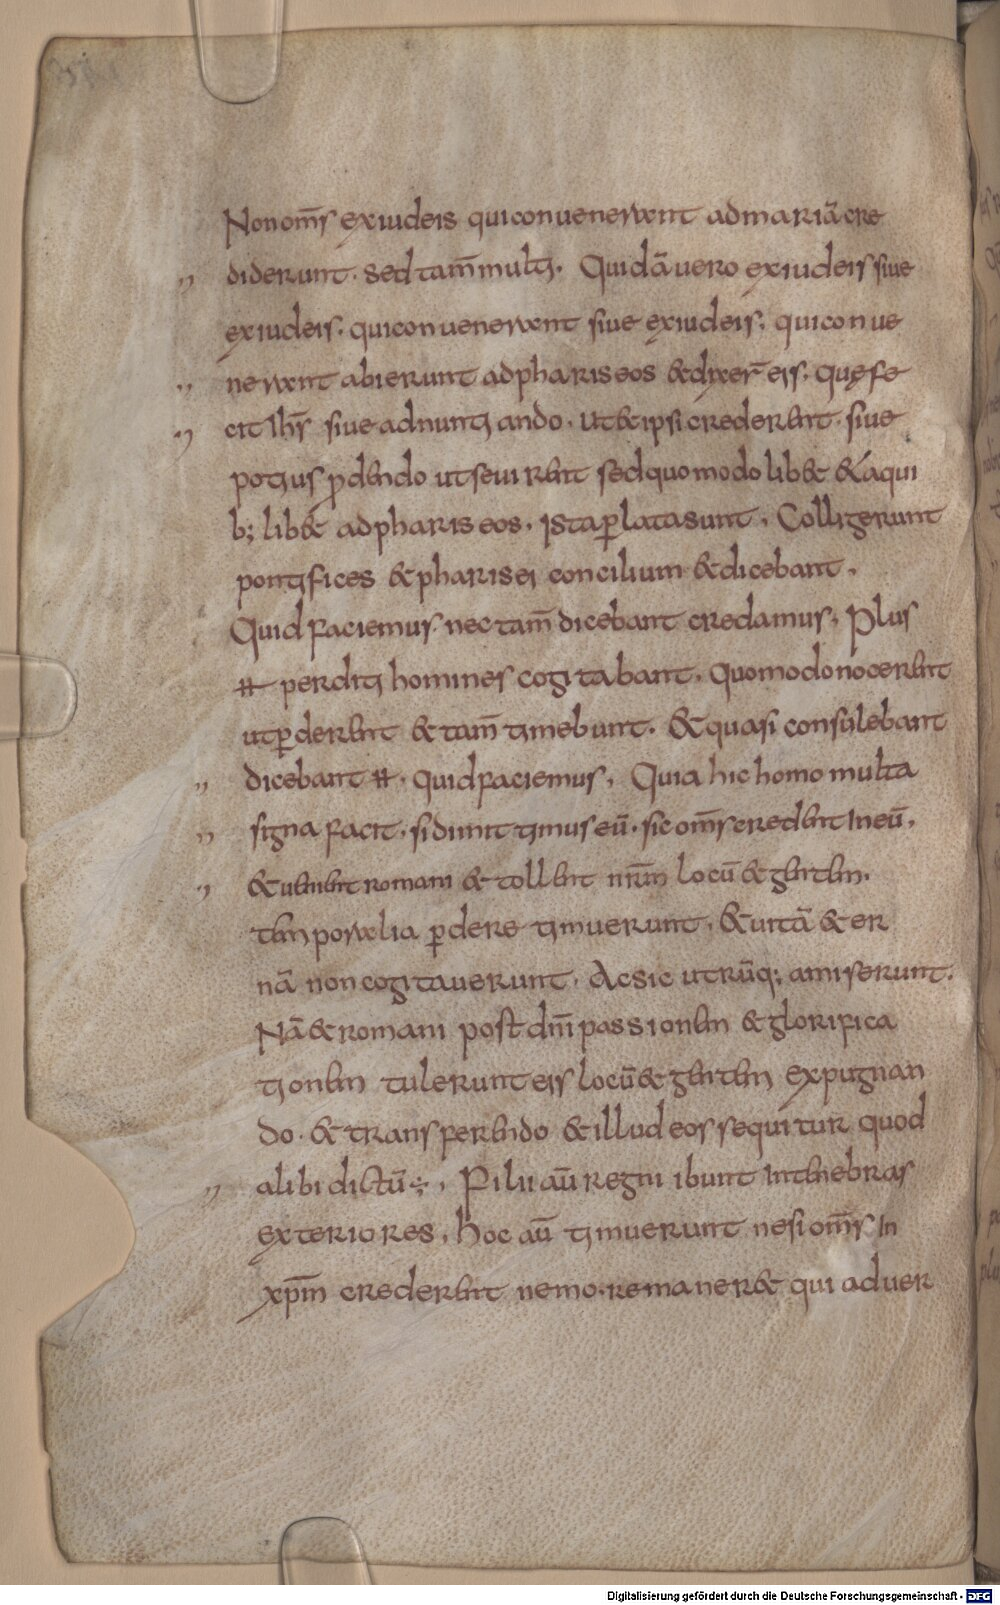 Non om̄s ex iudeis qui conuenerunt ad mariā cre
diderunt. sed tam̄ multi. Quidā uero ex iudeis siue
ex iudeis. qui conuenerant siue ex iudeis. qui conue
nerant abierunt ad phariseos & dixer̄ eis. quę fe
cit ih̄s siue adnuntiando. ut & ipsi crederent. siue
potius ꝓdendo ut seuirent sed quomodo lib& & a qui
b; lib& ad phariseos. ista ꝑlata sunt. Colligerunt
pontifices & pharisei concilium & dicebant.
Quid faciemus. nec tam̄ dicebant credamus. Plus
ħ perditi homines cogitabant. quomodo nocerent
ut ꝑderent & tam̄ timebunt. & quasi consulebant
dicebant ħ. quid faciemus. Quia hic homo multa
signa facit. si dimittimus eū. sic om̄s credent in eū.
& uenient romani & tollent nr̄m locū & gentem.
temporalia ꝑdere timuerunt. & uitā & er
nā non cogitauerunt. Ac sic utrūq; amiserunt.
Nā & romani post dn̄i passionem & glorifica
tionem tulerunt eis locū & gentem expugnan
do. & transferendo & illud eos sequitur quod
alibi dictū ÷. Filii aū regni ibunt in tenebras
exteriores. hoc aū timuerunt ne si om̄s in
xp̄m crederent nemo remaner& qui aduer
Digitalisierung gefördert durch die Deutsche Forschungsgemeinschaft - DFG